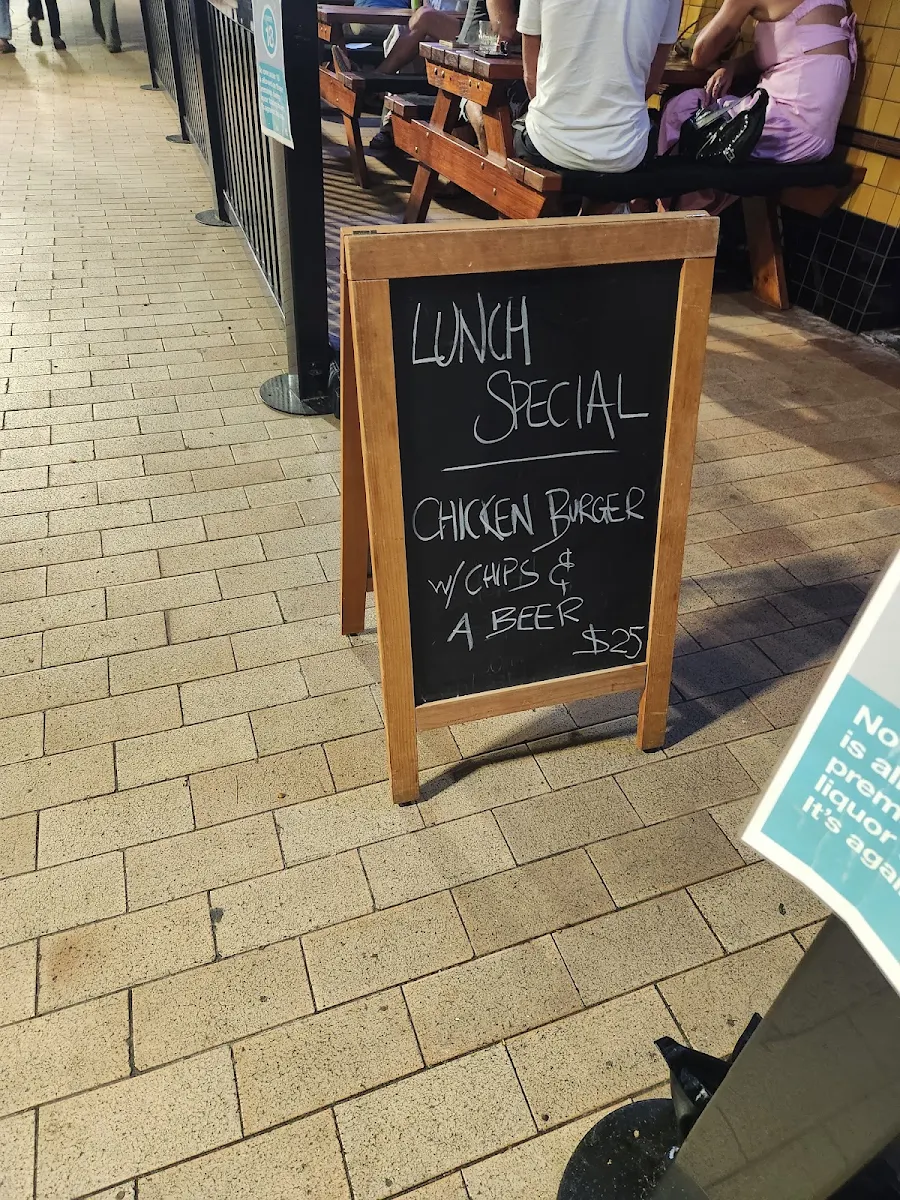 LUNCH
SPECIAL
CHICKEN BURGER
W/ CHIPS &
A BEER
$25
No
is al
prem
liquor
It's agai